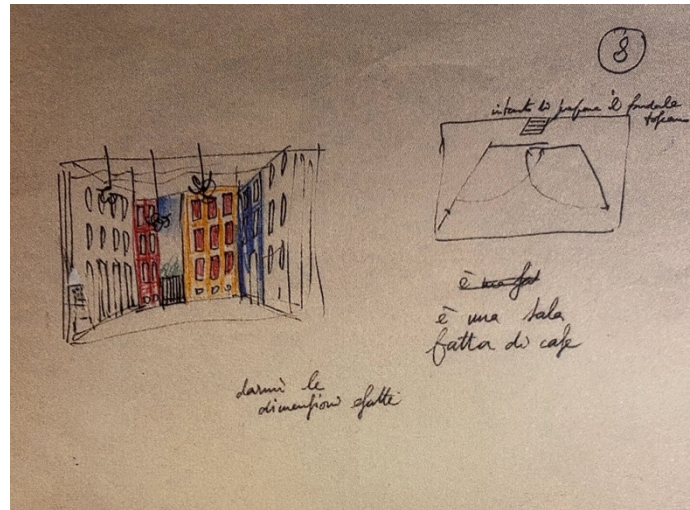 8
intanto si prepara il fondale
toscano
è
è una sala
fatta di case
darmi le
dimensioni esatte